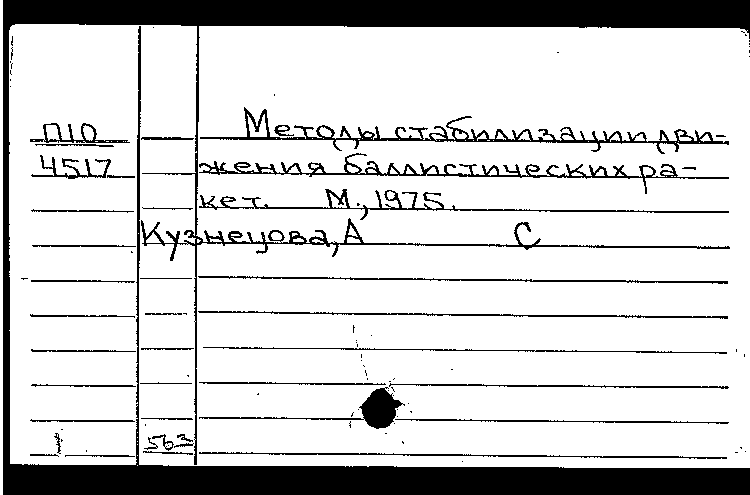 П10 Методы стабилизации дви-
4517 жения баллистических ра-
кет. М., 1975.
Кузнецова, А С
1 563